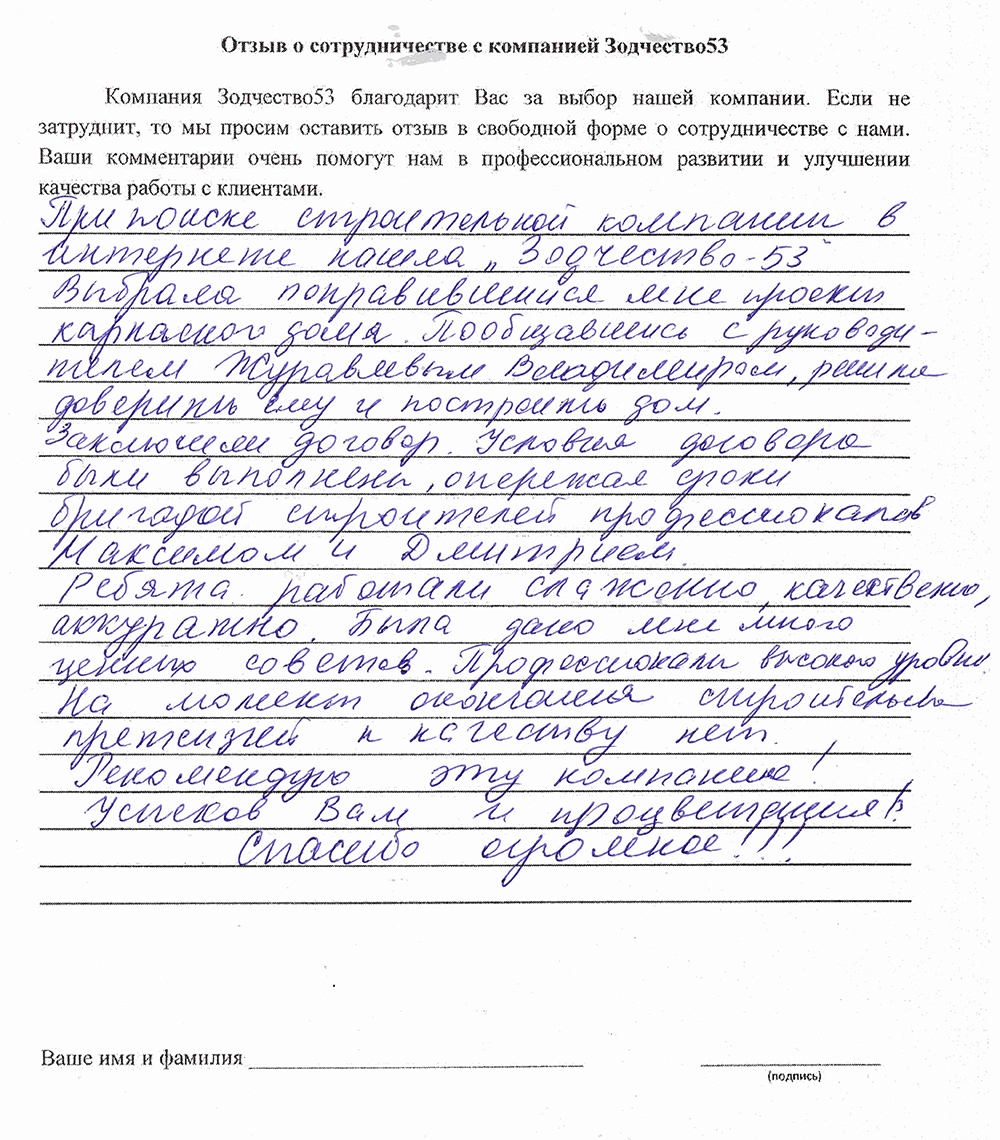 Отзыв о сотрудничестве с компанией Зодчество53
Компания Зодчество53 благодарит Вас за выбор нашей компании. Если не
затруднит, то мы просим оставить отзыв в свободной форме о сотрудничестве с нами.
Ваши комментарии очень помогут нам в профессиональном развитии и улучшении
качества работы с клиентами.
При поиске строительной компании в
интернете нашла „Зодчество-53"
Выбрала понравившийся мне проект
каркасного дома. Пообщавшись с руководи-
телем Журавлевым Владимиром, решила
доверить ему и построить дом.
Заключили договор. Условия договора
были выполнены, опережая сроки
бригадой строителей профессионалов
Максимом и Дмитрием.
Ребята работали слаженно, качественно,
аккуратно. Было дано мне много
ценных советов. Профессионалы высокого уровня.
На момент окончания строительства
претензий к качеству нет.
Рекомендую эту компанию!
Успехов Вам и процветания!
Спасибо огромное!!!
Ваше имя и фамилия
(подпись)